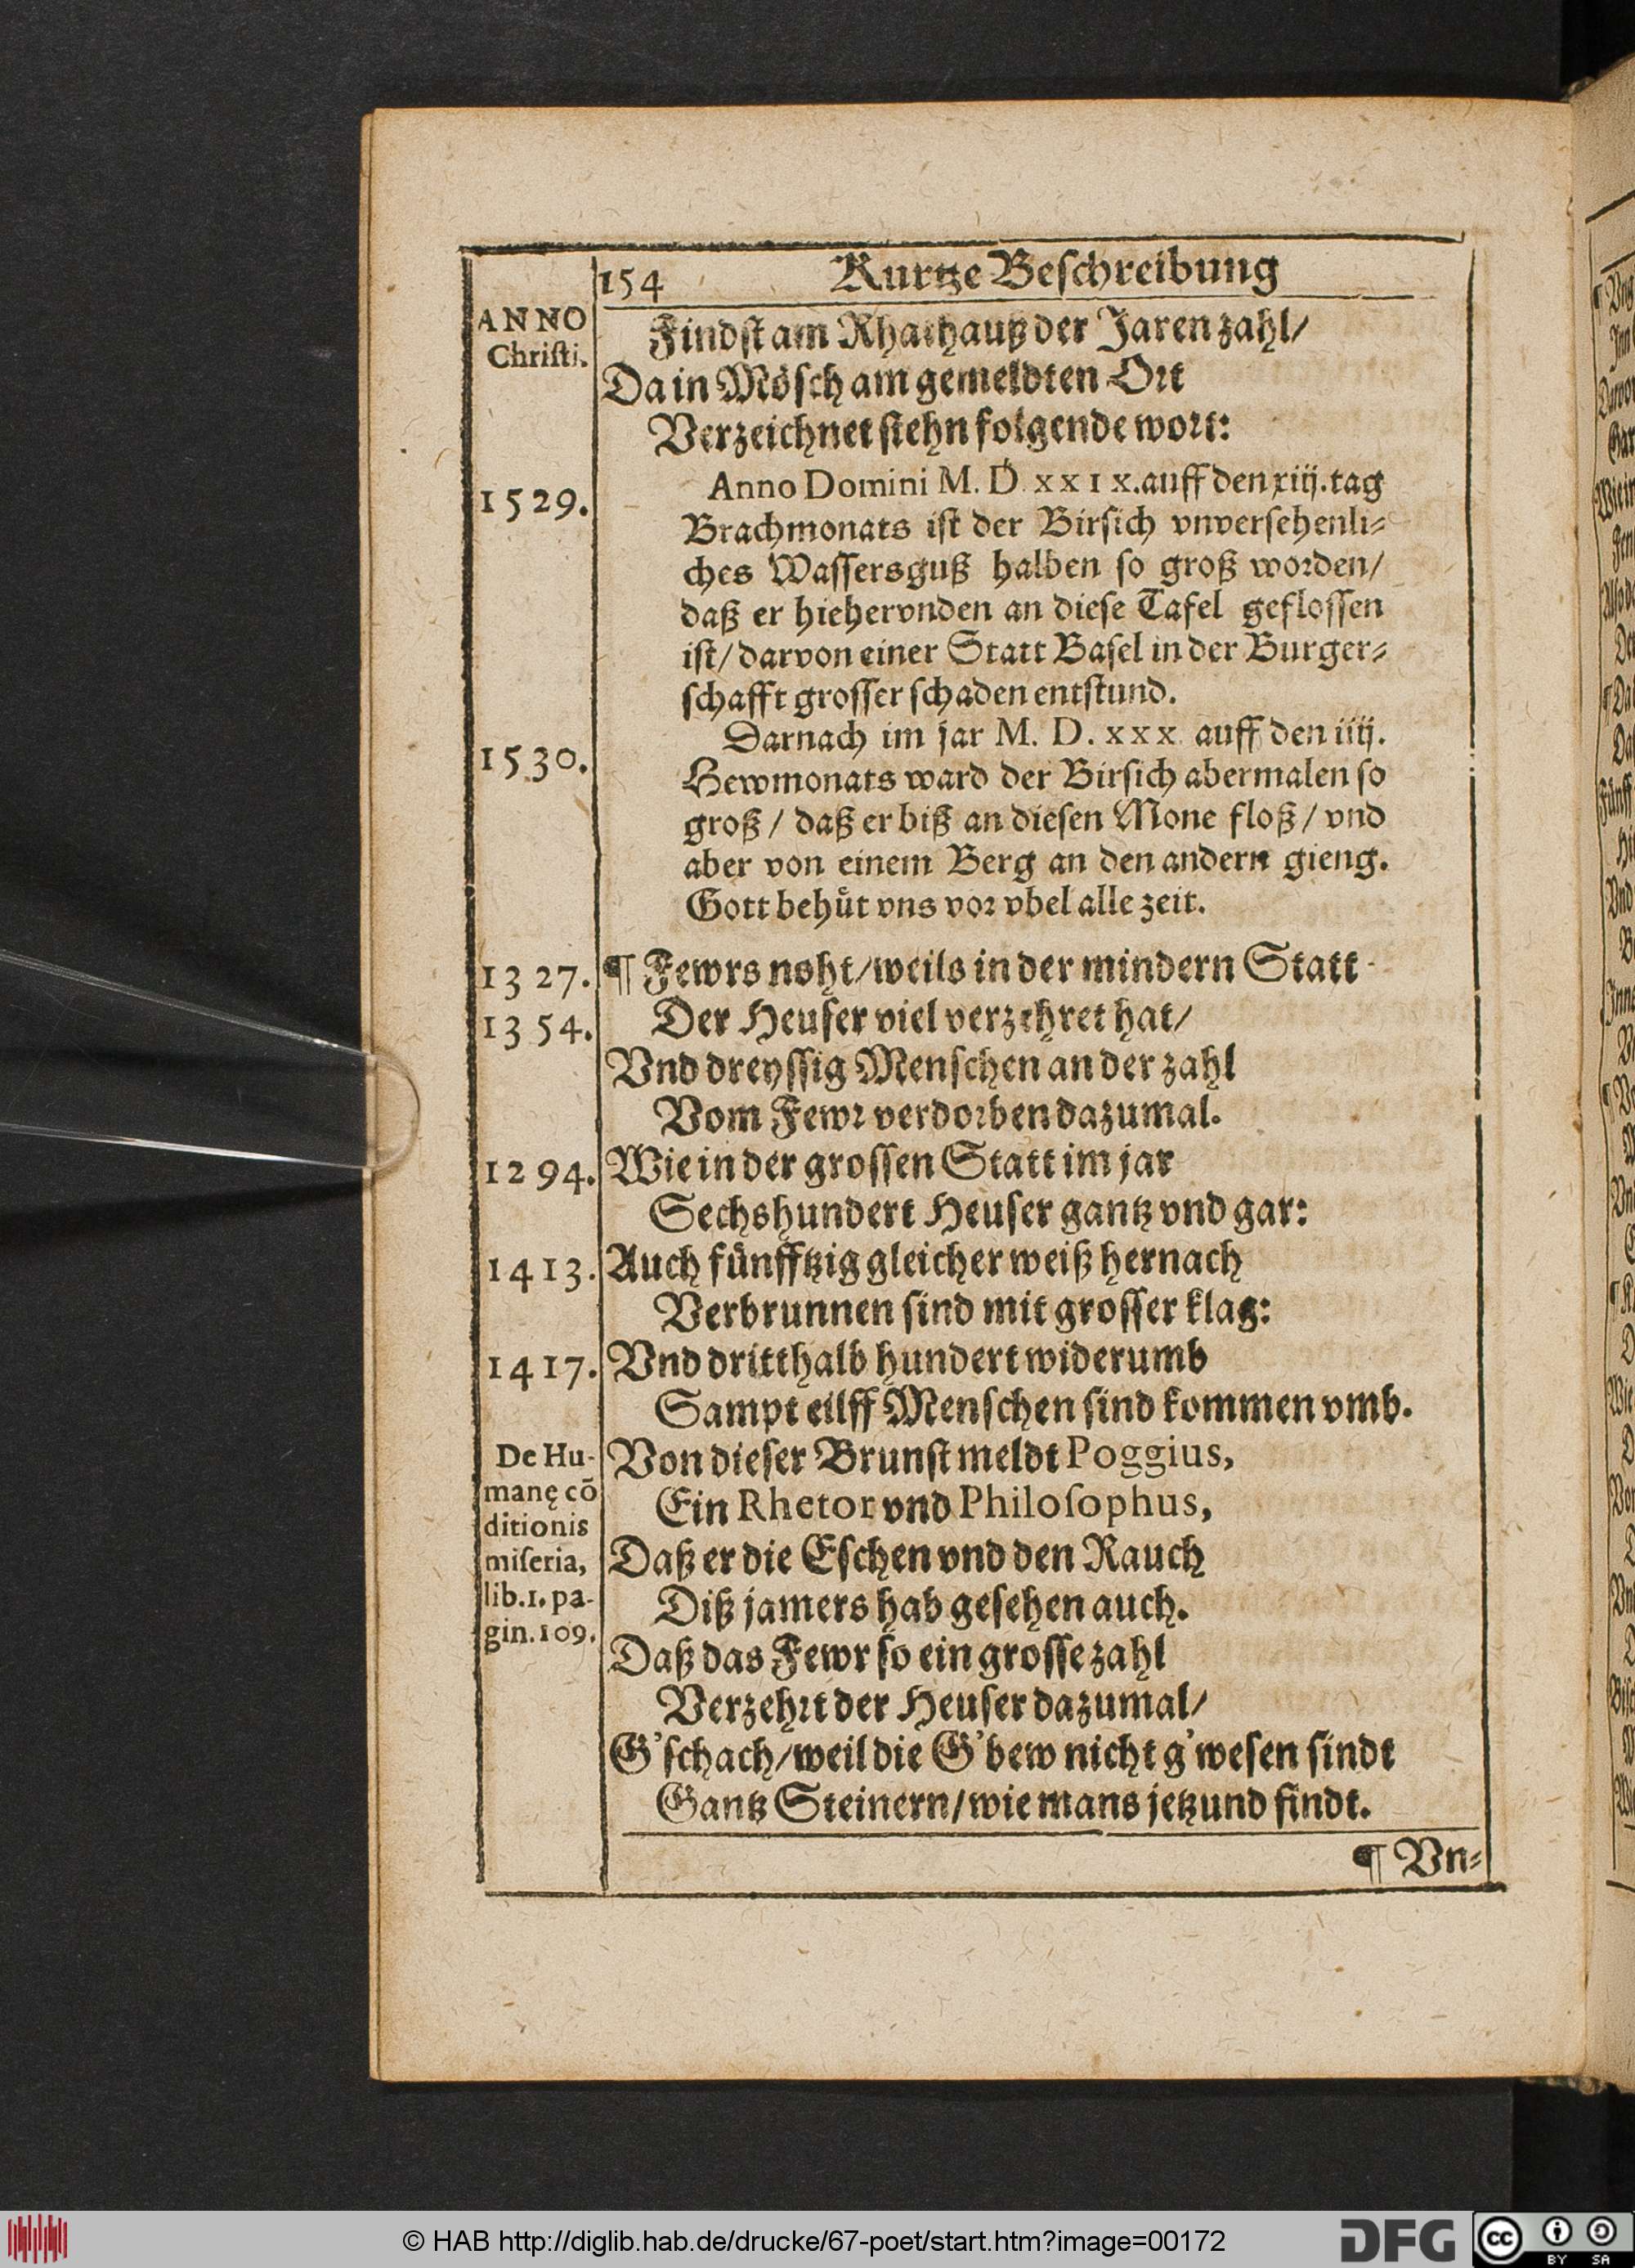 154 Kurtze Beſchreibung
ANNO
Chriſti.
Findſt am Rhathauß der Jaren zahl/
Da in Möſch am gemeldten Ort
Verzeichnet ſtehn folgende wort:
1529.
Anno Domini M. D. XXIX. auff den xiij. tag
Brachmonats iſt der Birſich vnverſehenli⸗
ches Waſſersguß halben ſo groß worden/
daß er hiehervnden an dieſe Tafel gefloſſen
iſt/ darvon einer Statt Baſel in der Burger⸗
ſchafft groſſer ſchaden entſtund.
1530.
Darnach im jar M. D. XXX. auff den iiij.
Hewmonats ward der Birſich abermalen ſo
groß/ daß er biß an dieſen Mone floß/ vnd
aber von einem Berg an den andern gieng.
Gott behüt vns vor vbel alle zeit.
1327. ¶ Fewrs noht/ weils in der mindern Statt
1354. Der Heuſer viel verzehret hat/
Vnd dreyſſig Menſchen an der zahl
Vom Fewr verdorben dazumal.
1294. Wie in der groſſen Statt im jar
Sechshundert Heuſer gantz vnd gar:
1413. Auch fünfftzig gleicher weiß hernach
Verbrunnen ſind mit groſſer klag:
1417. Vnd dritthalb hundert widerumb
Sampt eilff Menſchen ſind kommen vmb.
De Hu-
manę cō
ditionis
miſeria,
lib.1. pa-
gin.109.
Von dieſer Brunſt meldt Poggius,
Ein Rhetor vnd Philoſophus,
Daß er die Eſchen vnd den Rauch
Diß jamers hab geſehen auch.
Daß das Fewr ſo ein groſſe zahl
Verzehrt der Heuſer dazumal/
G'ſchach/ weil die G'bew nicht g'weſen ſindt
Gantz Steinern/ wie mans jetzund findt.
¶ Vn⸗
© HAB http://diglib.hab.de/drucke/67-poet/start.htm?image=00172
DFG
cc
BY SA